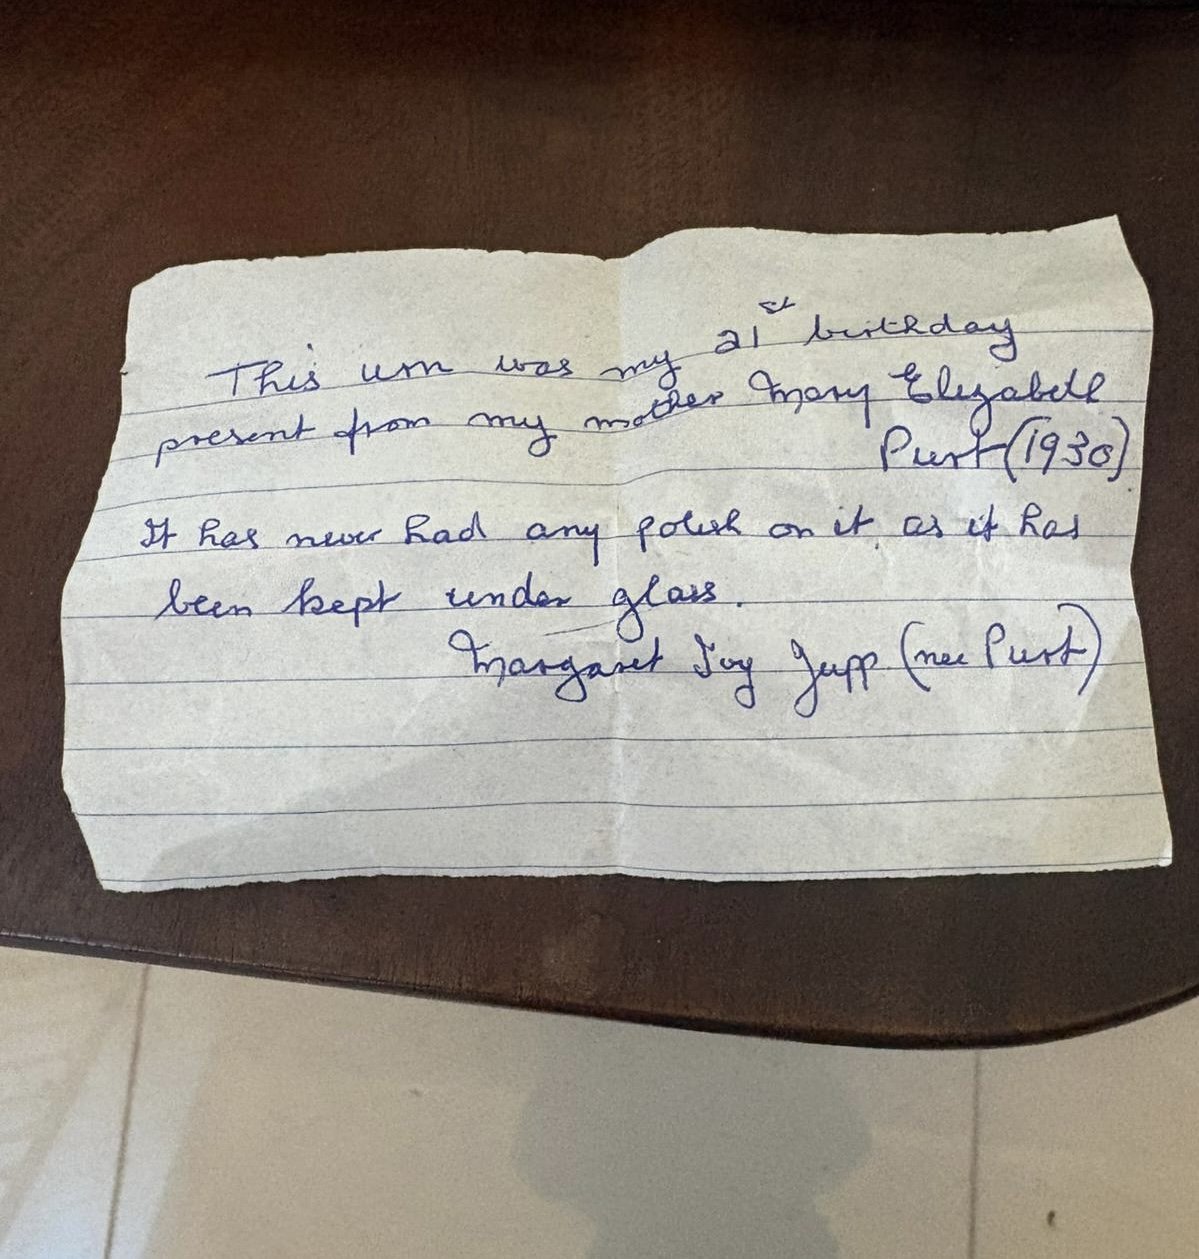 This urn was my 21st birthday
present from my mother Mary Elizabeth
Purt (1930)
It has never had any polish on it as it has
been kept under glass.
Margaret Joy Jupp (nee Purt)